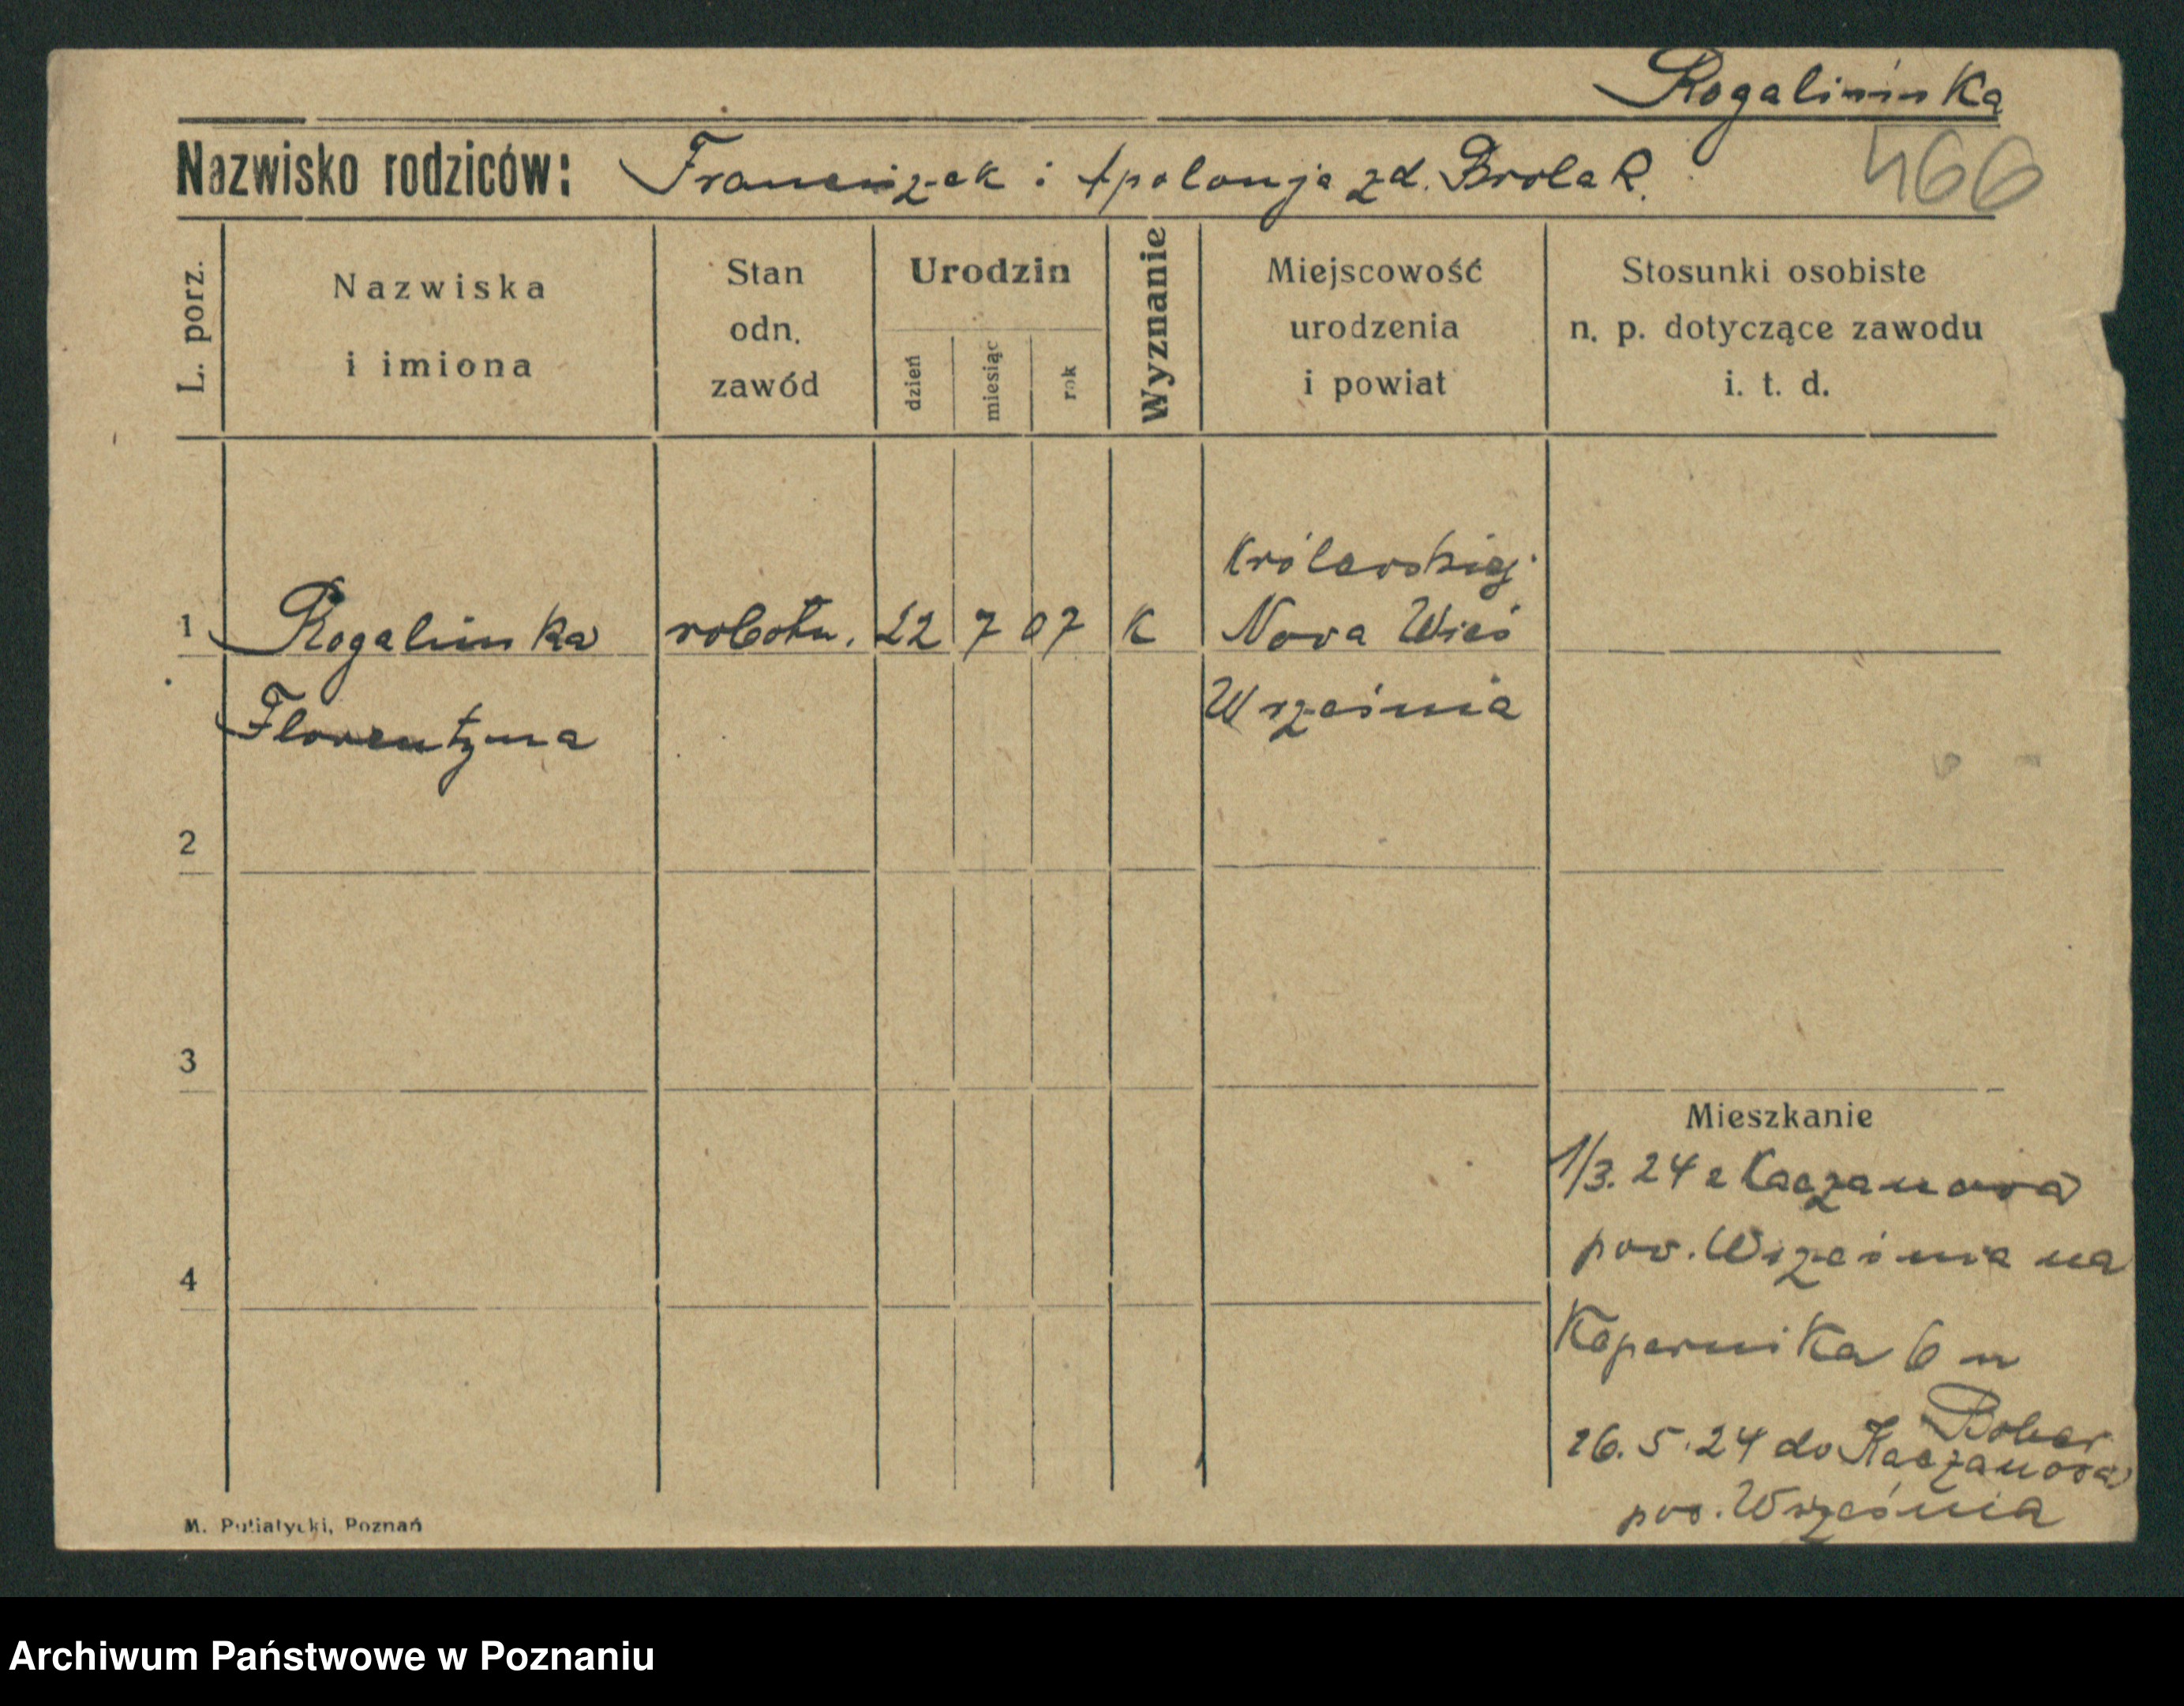 Rogalinska
Nazwisko rodziców: Franciszek i Apolonja zd. Brolek.
466
L. porz.
Nazwiska
i imiona
Stan
odn.
zawód
Urodzin
dzień
miesiąc
rok
Wyznanie
Miejscowość
urodzenia
i powiat
Stosunki osobiste
n. p. dotyczące zawodu
i. t. d.
1 Rogalinska robotn. 22 7 07 K Nowa Wieś
Florentyna Września
2
3
4
Mieszkanie
1/3. 24 z Kaczanowa
pow. Września na
Kopernika 6 u
26. 5. 24 do Kaczanowa
pow. Września
M. Putiatycki, Poznań
Archiwum Państwowe w Poznaniu